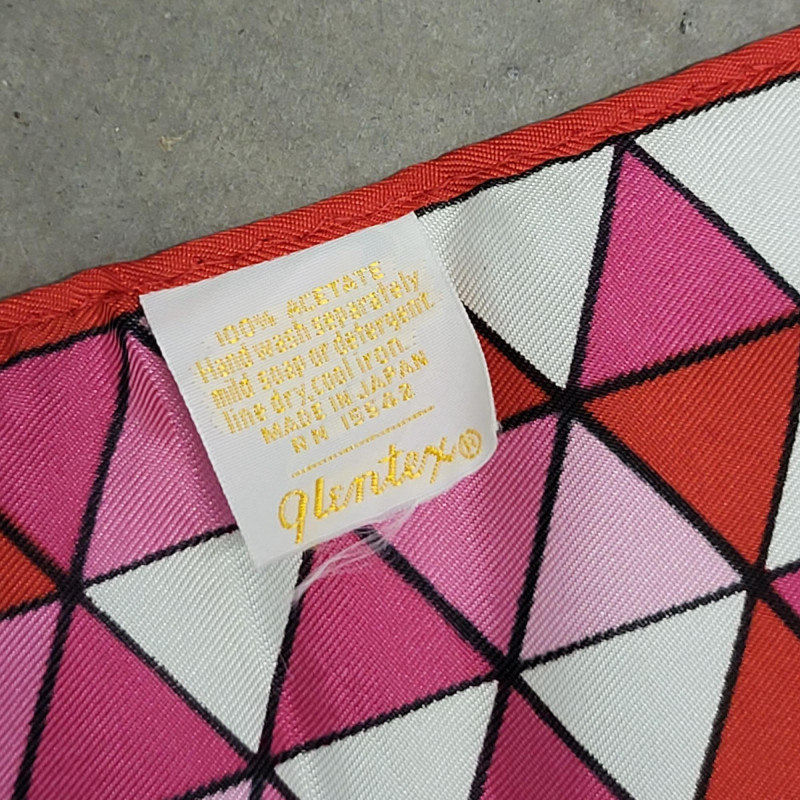 100% ACETATE
Hand wash separately
mild soap or detergent.
line dry, cool iron.
MADE IN JAPAN
RN 15642
glentex®